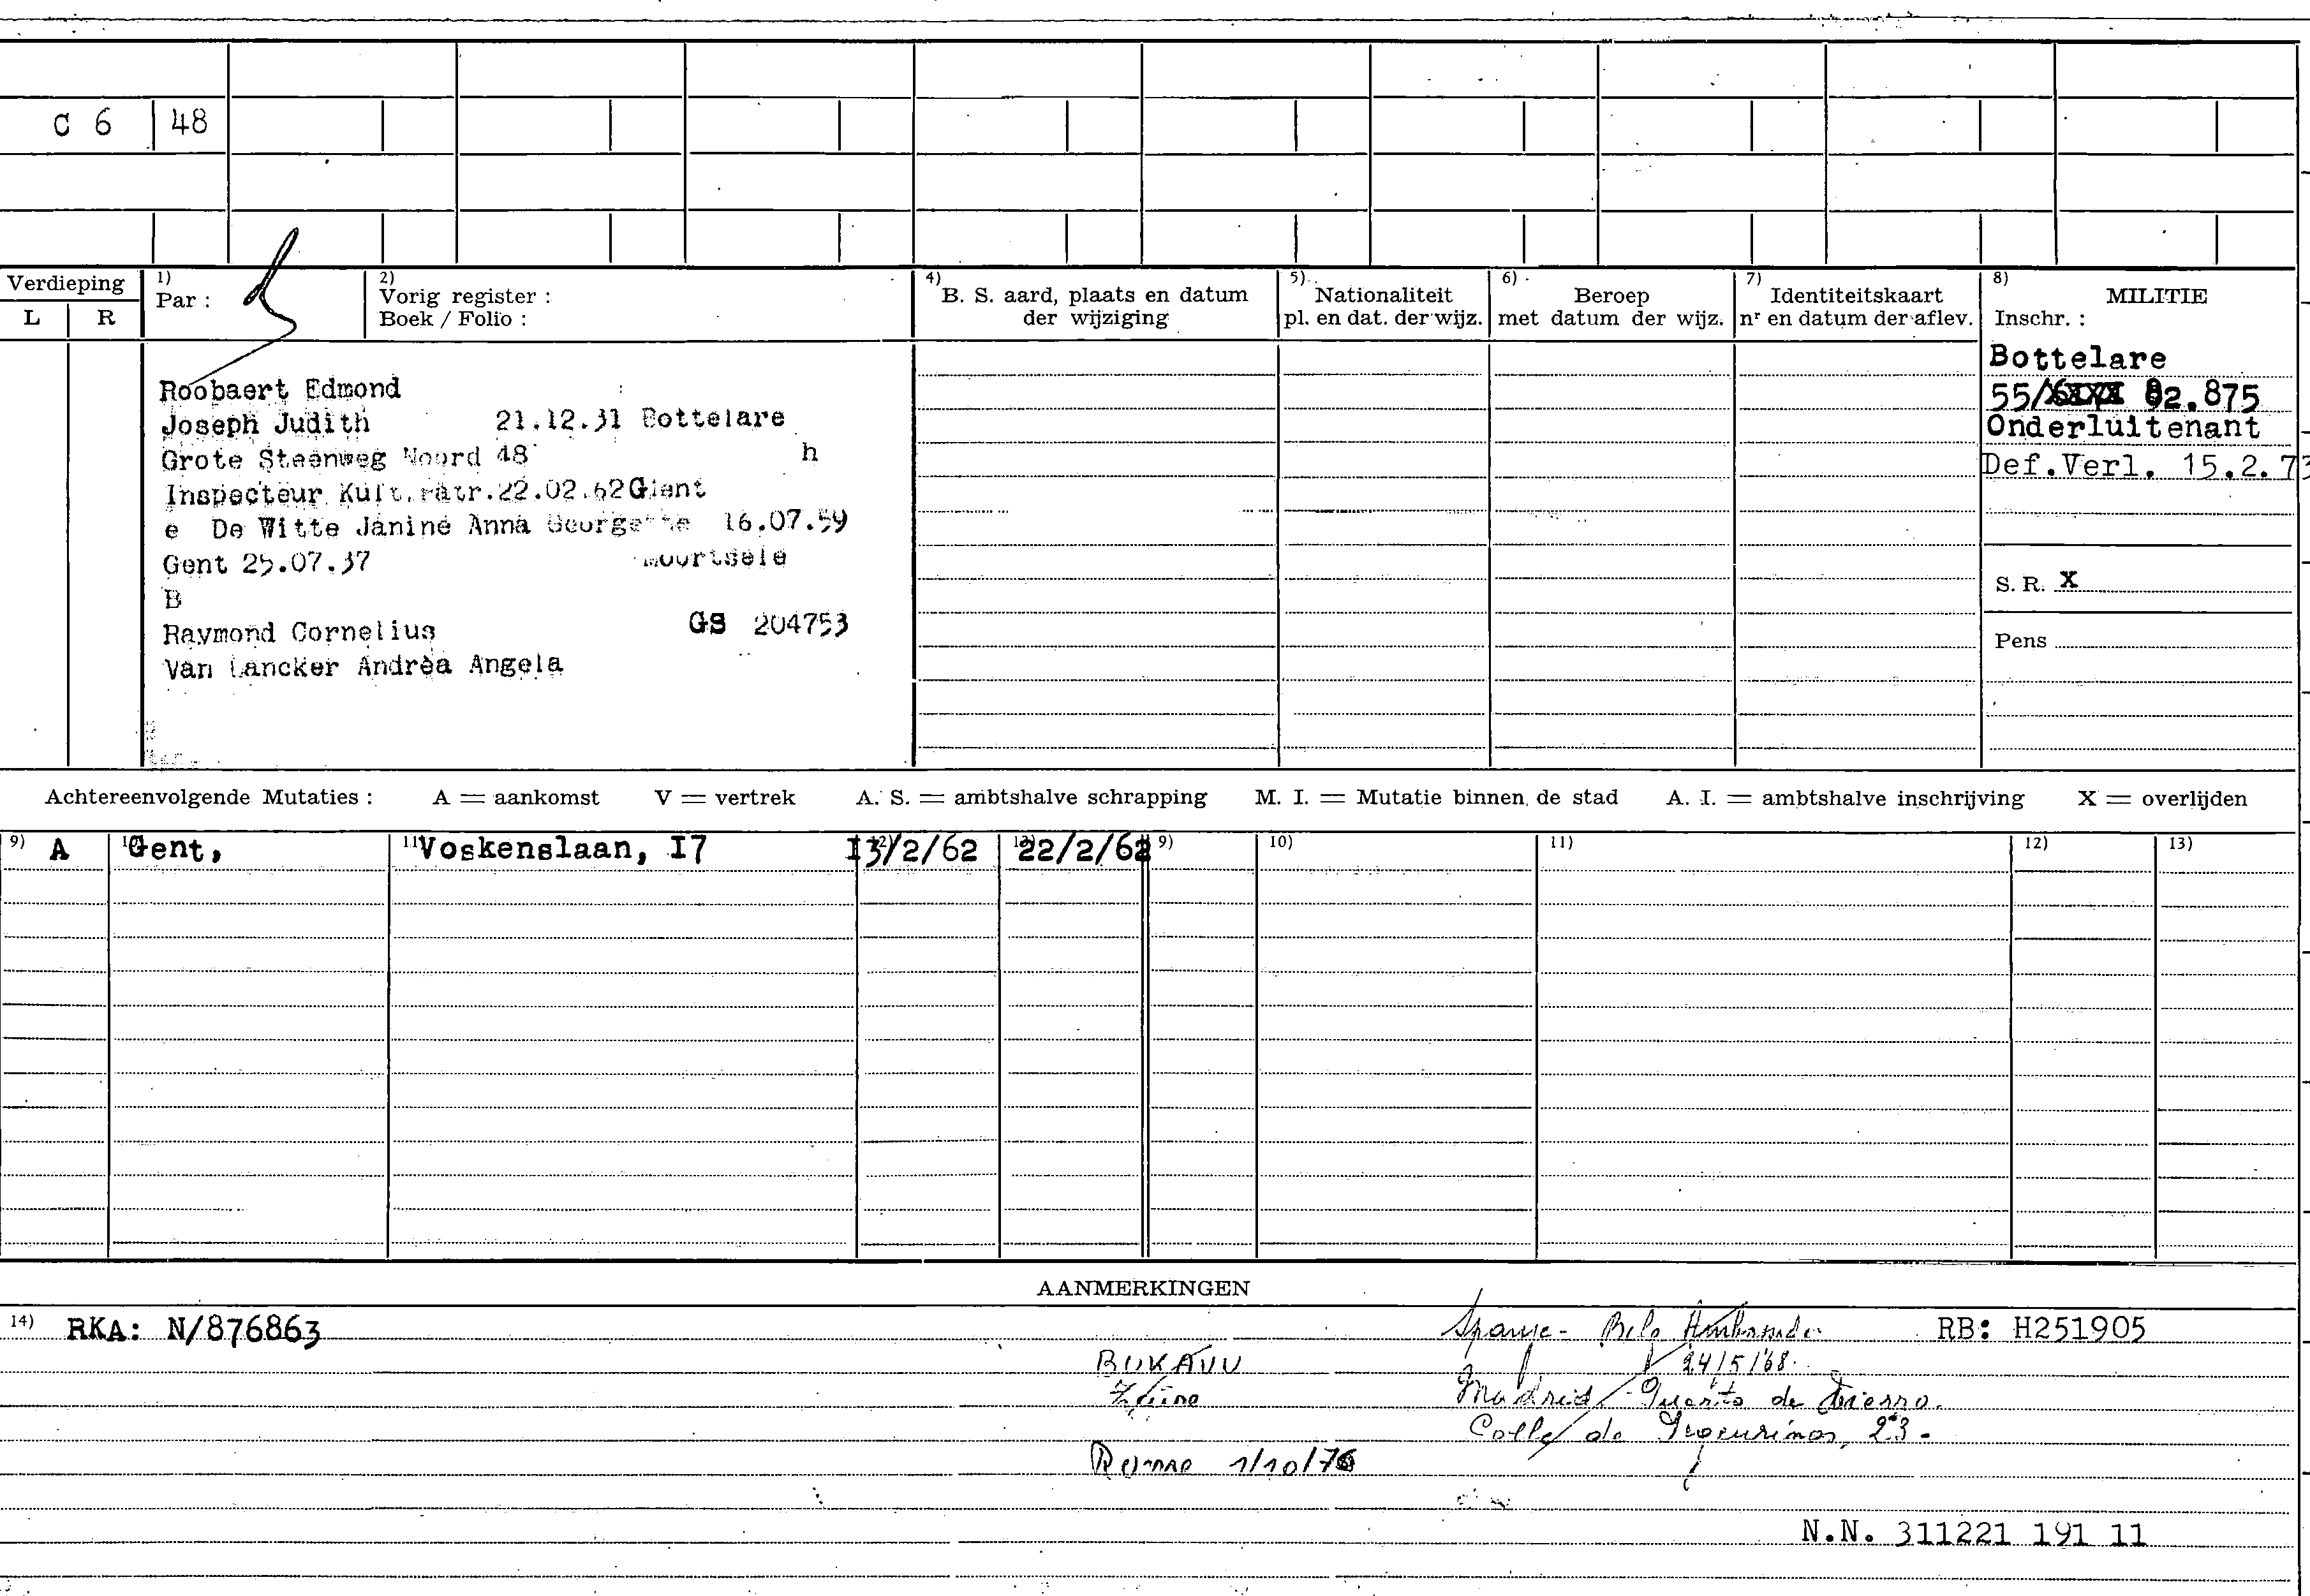 C 6 48
Verdieping
L R
1) Par :
2) Vorig register :
Boek / Folio :
4) B. S. aard, plaats en datum
der wijziging
5) Nationaliteit
pl. en dat. der wijz.
6) Beroep
met datum der wijz.
7) Identiteitskaart
nr en datum der aflev.
8) MILITIE
Inschr. :
Bottelare
55/ 82.875
Onderluitenant
Def.Verl. 15.2.73
S. R. X
Pens
Roobaert Edmond
Joseph Judith 21.12.31 Bottelare
Grote Steenweg Noord 48 h
Inspecteur 22.02.62 Gent
e De Witte Janine Anna Georgette 16.07.59
Gent 25.07.37 Moortsele
B
Raymond Cornelius GS 204753
Van Lancker Andrèa Angela
Achtereenvolgende Mutaties : A = aankomst V = vertrek A. S. = ambtshalve schrapping M. I. = Mutatie binnen de stad A. I. = ambtshalve inschrijving X = overlijden
9) A 10) Gent, 11) Voskenslaan, I7 12) I3/2/62 13) 22/2/62 9) 10) 11) 12) 13)
AANMERKINGEN
14) RKA: N/876863
Spanje - Belg Ambassade RB: H251905
BUKAVU 24/5/68.
Zaïre Madrid - Puerto de Hierro.
Calle de 23.
Rome 1/10/76
N.N. 311221 191 11